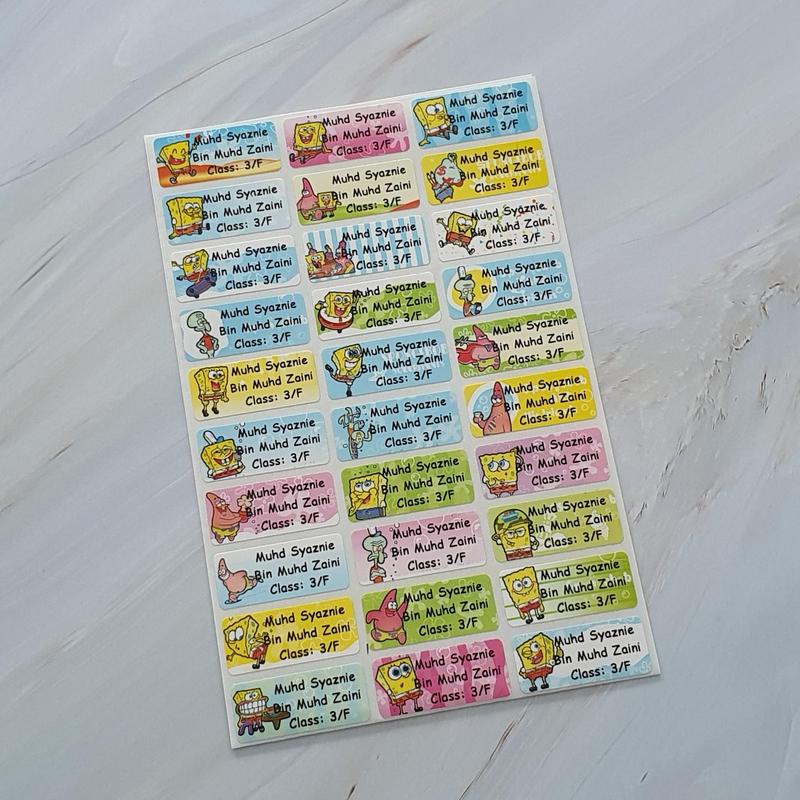 Muhd Syaznie
Bin Muhd Zaini
Class: 3/F
Muhd Syaznie
Bin Muhd Zaini
Class: 3/F
Muhd Syaznie
Bin Muhd Zaini
Class: 3/F
Muhd Syaznie
Bin Muhd Zaini
Class: 3/F
Muhd Syaznie
Bin Muhd Zaini
Class: 3/F
Muhd Syaznie
Bin Muhd Zaini
Class: 3/F
Muhd Syaznie
Bin Muhd Zaini
Class: 3/F
Muhd Syaznie
Bin Muhd Zaini
Class: 3/F
Muhd Syaznie
Bin Muhd Zaini
Class: 3/F
Muhd Syaznie
Bin Muhd Zaini
Class: 3/F
Muhd Syaznie
Bin Muhd Zaini
Class: 3/F
Muhd Syaznie
Bin Muhd Zaini
Class: 3/F
Muhd Syaznie
Bin Muhd Zaini
Class: 3/F
Muhd Syaznie
Bin Muhd Zaini
Class: 3/F
Muhd Syaznie
Bin Muhd Zaini
Class: 3/F
Muhd Syaznie
Bin Muhd Zaini
Class: 3/F
Muhd Syaznie
Bin Muhd Zaini
Class: 3/F
Muhd Syaznie
Bin Muhd Zaini
Class: 3/F
Muhd Syaznie
Bin Muhd Zaini
Class: 3/F
Muhd Syaznie
Bin Muhd Zaini
Class: 3/F
Muhd Syaznie
Bin Muhd Zaini
Class: 3/F
Muhd Syaznie
Bin Muhd Zaini
Class: 3/F
Muhd Syaznie
Bin Muhd Zaini
Class: 3/F
Muhd Syaznie
Bin Muhd Zaini
Class: 3/F
Muhd Syaznie
Bin Muhd Zaini
Class: 3/F
Muhd Syaznie
Bin Muhd Zaini
Class: 3/F
Muhd Syaznie
Bin Muhd Zaini
Class: 3/F
Muhd Syaznie
Bin Muhd Zaini
Class: 3/F
Muhd Syaznie
Bin Muhd Zaini
Class: 3/F
Muhd Syaznie
Bin Muhd Zaini
Class: 3/F